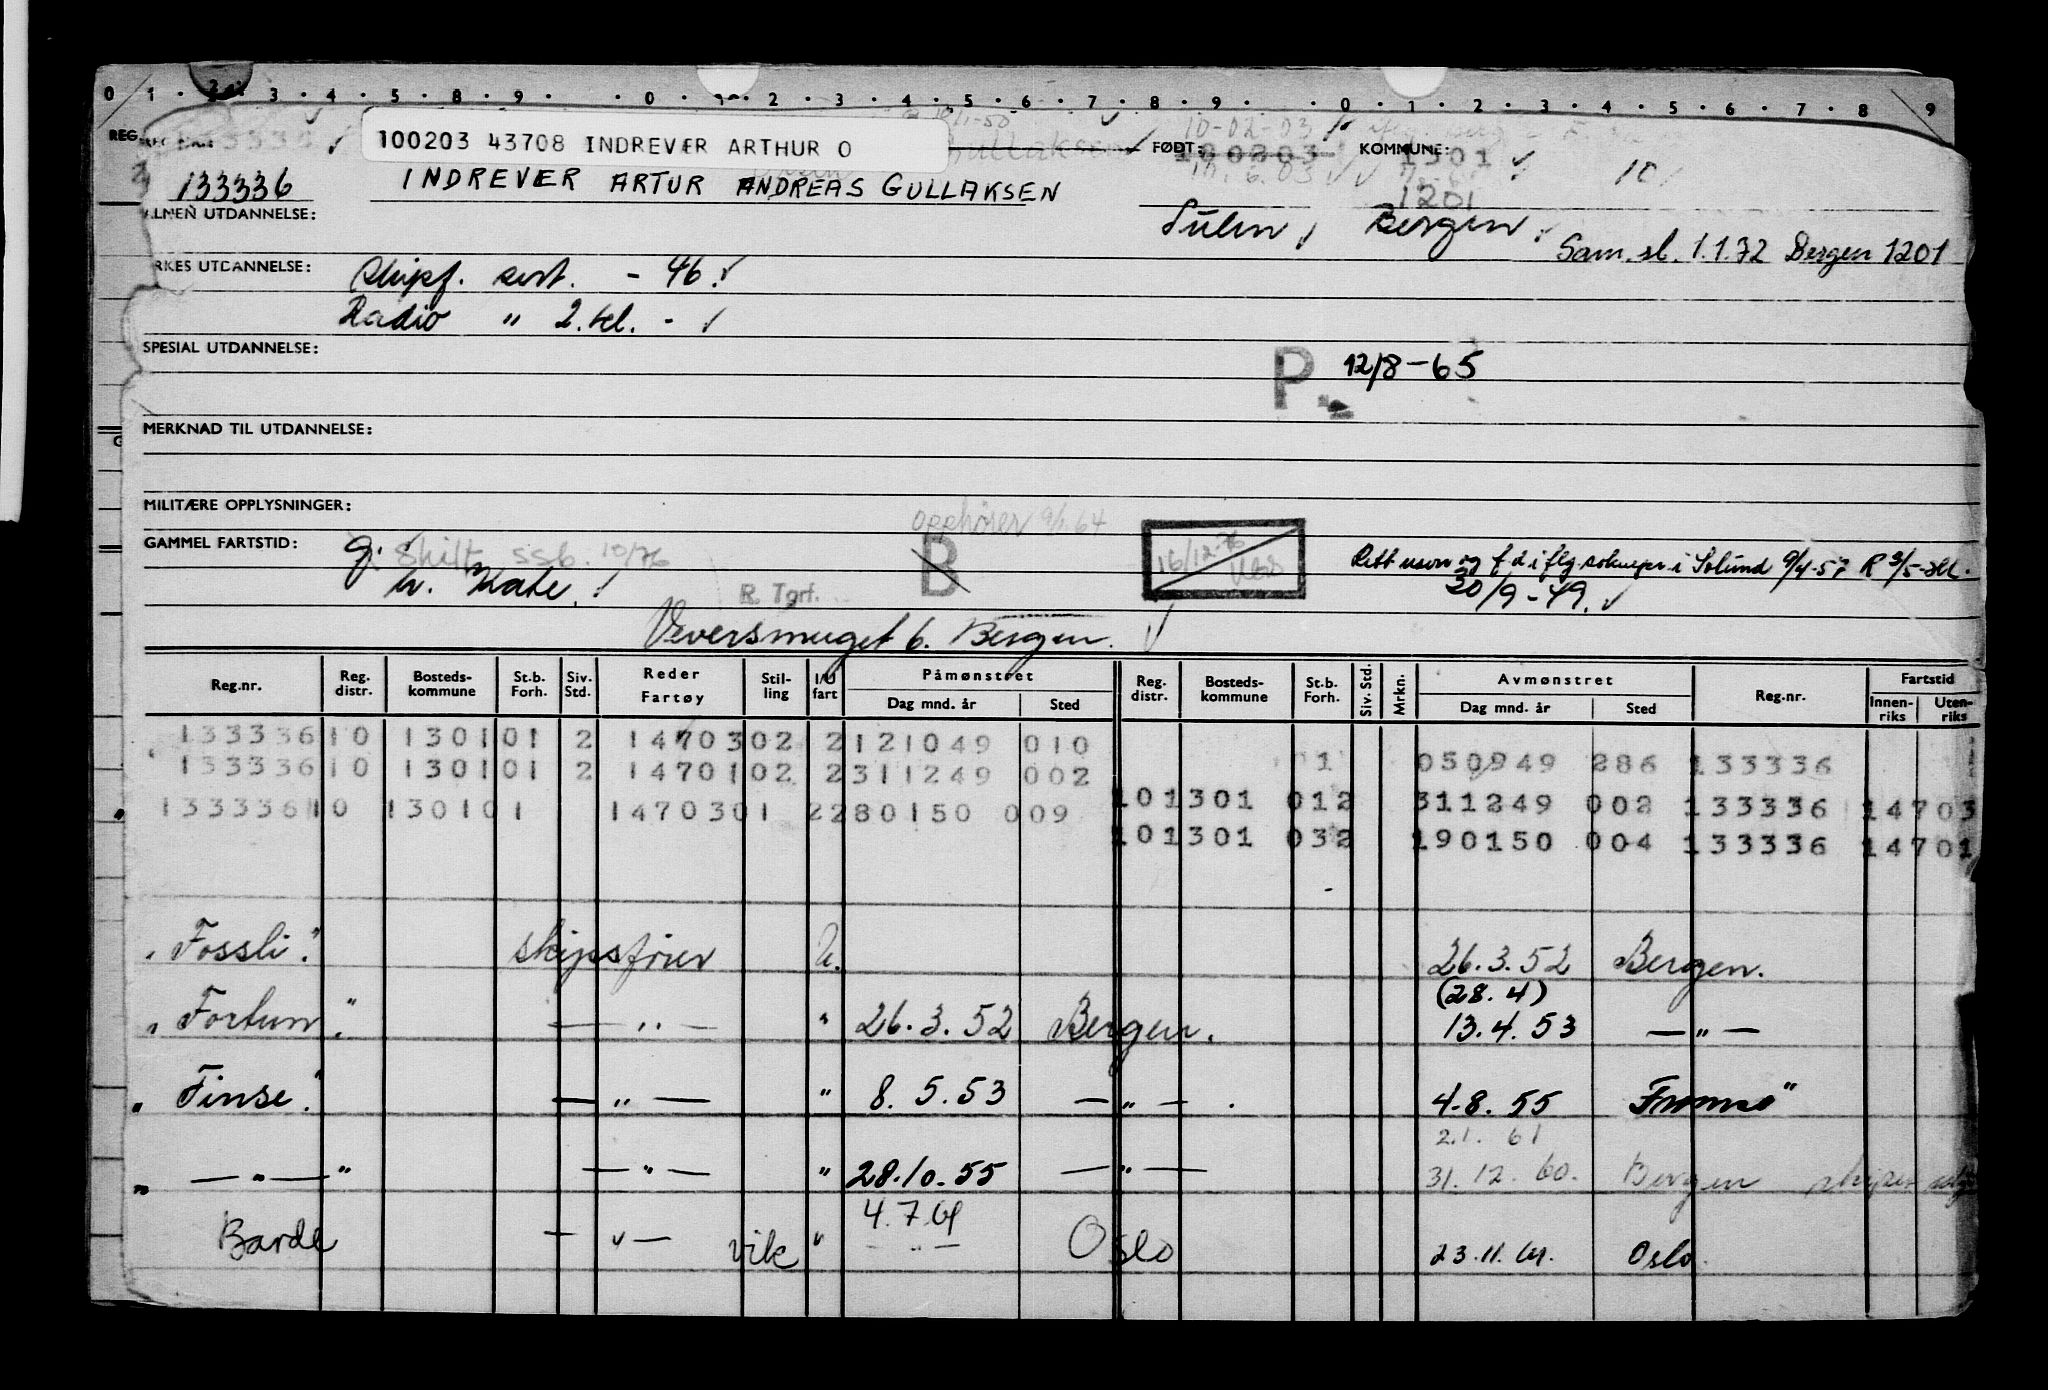 0 1 2 3 4 5 6 7 8 9 0 1 2 3 4 5 6 7 8 9 0 1 2 3 4 5 6 7 8 9
100203 43708 INDREVER ARTHUR O
10-02-03
FØDT: KOMMUNE: 1301
133336 INDREVER ARTUR ANDREAS GULLAKSEN 1201
UTDANNELSE: Sulen Bergen
Sam. sl. 1.1.72 Bergen 1201
UTDANNELSE: Skipsf. sert. - 46.
Radio " 2. kl. -
SPESIAL UTDANNELSE:
P. 12/8-65
MERKNAD TIL UTDANNELSE:
MILITÆRE OPPLYSNINGER:
Opphører 9/1.64
GAMMEL FARTSTID: g. Skilt ssb. 10/76 B 16/12-76
u. Kate. R. Tgrf. 20/9-49.
Veversmuget 6. Bergen.
Reg.nr. Reg. distr. Bosteds-kommune St.b. Forh. Siv. Std. Reder Fartøy Stil-ling I/U fart Påmønstret Dag mnd. år Sted Reg. distr. Bosteds-kommune St.b. Forh. Siv. Std. Mrkn. Avmønstret Dag mnd. år Sted Reg.nr. Fartstid Innen-riks Uten-riks
133336 10 1301 01 2 14703 02 2 121049 010
1 050949 286 133336
133336 10 1301 01 2 14701 02 2 311249 002
10 1301 012 311249 002 133336 14703
133336 10 1301 01 14703 01 2 280150 009
10 1301 032 190150 004 133336 14701
"Fossli" skipsfører U. 26.3.52 Bergen.
(28.4)
"Fortun" — " — " 26.3.52 Bergen. 13.4.53 — " —
"Finse" — " — " 8.5.53 — " — 4.8.55 Tromsø
2.1.61
" — " — " — " — " 28.10.55 — " — 31.12.60. Bergen
4.7.61
Barde — " — vik " — " — Oslo 23.11.61. Oslo